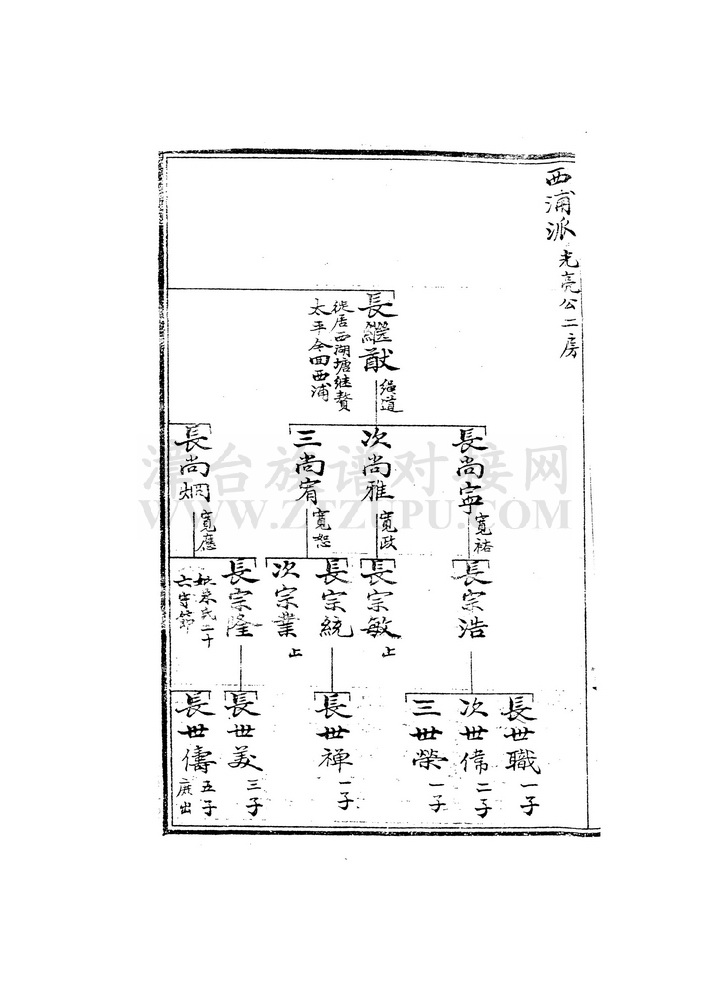 西浦派 光亮公二房
長繼猷 紹道
徙居西湖塘継贅
太平今回西浦
長尚寧 寬祐
次尚雅 寬政
三尚宥 寬恕
長尚烱 寬應
長宗浩
長宗敏 止
長宗統
次宗業 止
長宗隆
妣朱氏二十
六守節
長世職 一子
次世偉 二子
三世榮 一子
長世禅 一子
長世美 三子
長世儔 五子
庶出
漳台族谱对接网
WWW.ZTZUPU.COM